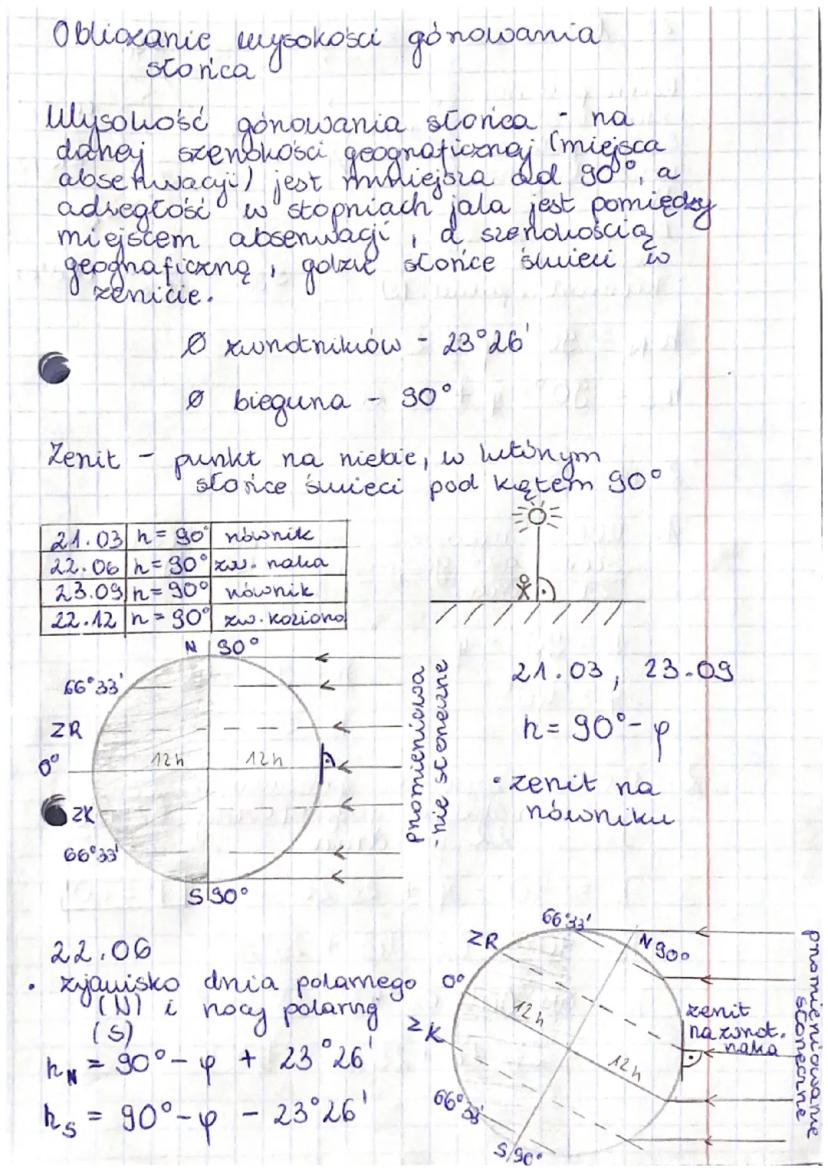 Obliczanie wysokości górowania
słońca
Wysokość górowania słońca - na
danej szerokości geograficznej (miejsca
obserwacji) jest mniejsza od 90°, a
odległość w stopniach jaka jest pomiędzy
miejscem obserwacji, a szerokością
geograficzną, gdzie słońce świeci w
zenicie.
Ø zwrotników - 23°26'
Ø bieguna - 90°
Zenit - punkt na niebie, w którym
słońce świeci pod kątem 90°
21.03 h = 90° równik
22.06 h = 90° zw. raka
23.09 h = 90° równik
22.12 h = 90° zw. kozioro
N 90°
66°33'
ZR
0°
12h 12h
ZK
66°33'
S 90°
promieniowa
-nie słoneczne
21.03, 23.09
h = 90° - φ
• zenit na
równiku
22.06
• zjawisko dnia polarnego
(N) i nocy polarną
(S)
hN = 90° - φ + 23°26'
hS = 90° - φ - 23°26'
66°33'
ZR
N 90°
0°
12h
ZK
12h
zenit
na zwrot.
raka
66°33'
S 90°
promieniowanie
słoneczne